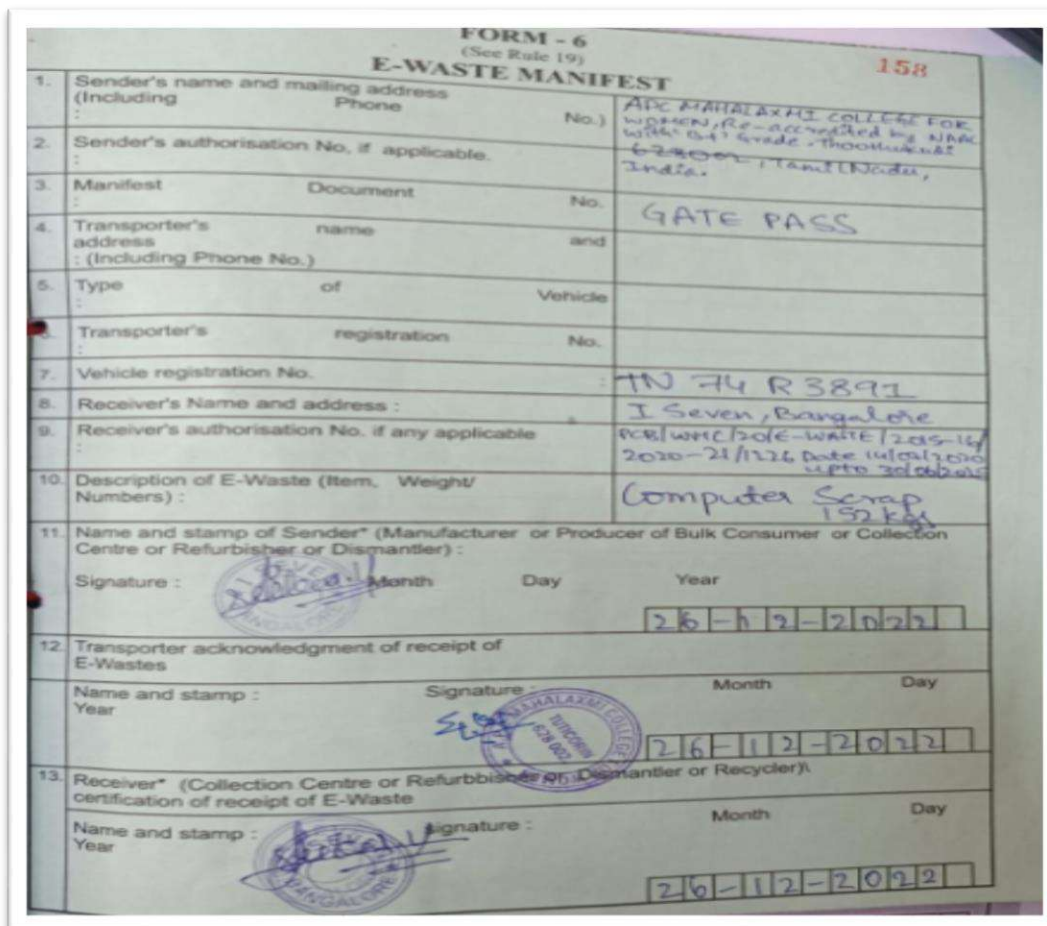 FORM - 6
(See Rule 19)
E-WASTE MANIFEST
158
1. Sender's name and mailing address
(Including Phone No.)
:
APC MAHALAXMI COLLEGE FOR
WOMEN, Re-accredited by NAAC
with Grade Thoothukudi
628002, Tamil Nadu,
India.
2. Sender's authorisation No, if applicable.
:
3. Manifest Document No.
:
GATE PASS
4. Transporter's name and
address
: (Including Phone No.)
5. Type of Vehicle
:
Transporter's registration No.
:
7. Vehicle registration No. :
TN 74 R 3891
8. Receiver's Name and address :
I Seven, Bangalore
9. Receiver's authorisation No. if any applicable
:
2020-21/1226 Date
upto
10. Description of E-Waste (Item, Weight/
Numbers) :
Computer Scrap
152 kgs
11. Name and stamp of Sender* (Manufacturer or Producer of Bulk Consumer or Collection
Centre or Refurbisher or Dismantler) :
Signature : Month Day Year
BANGALORE
26-12-2022
12. Transporter acknowledgment of receipt of
E-Wastes
Name and stamp : Signature : Month Day
Year
MAHALAXMI COLLEGE
TUTICORIN
628 002
26-12-2022
13. Receiver* (Collection Centre or Refurbbisher or Dismantler or Recycler)\
certification of receipt of E-Waste
Name and stamp : signature : Month Day
Year
BANGALORE
26-12-2022